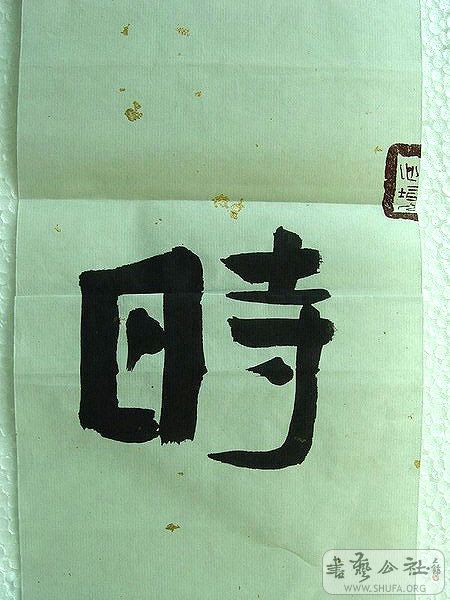 時
書藝公社
WWW.SHUFA.ORG